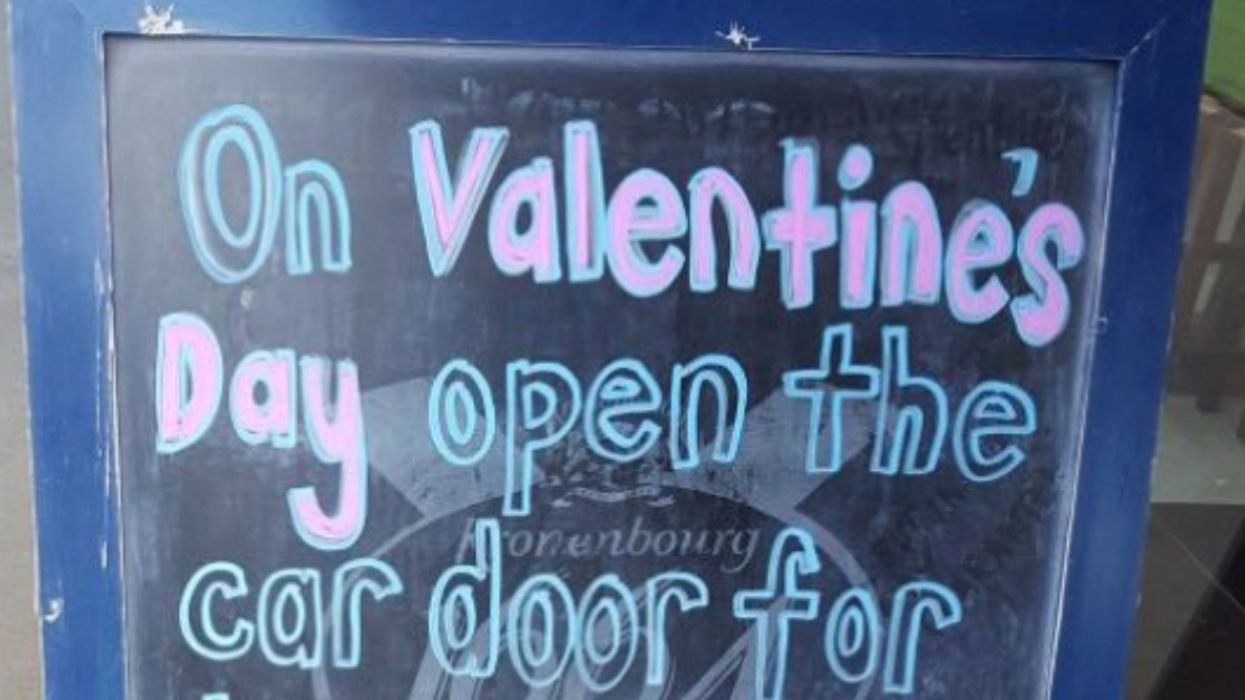 On Valentine's
Day open the
Kronenbourg
car door for